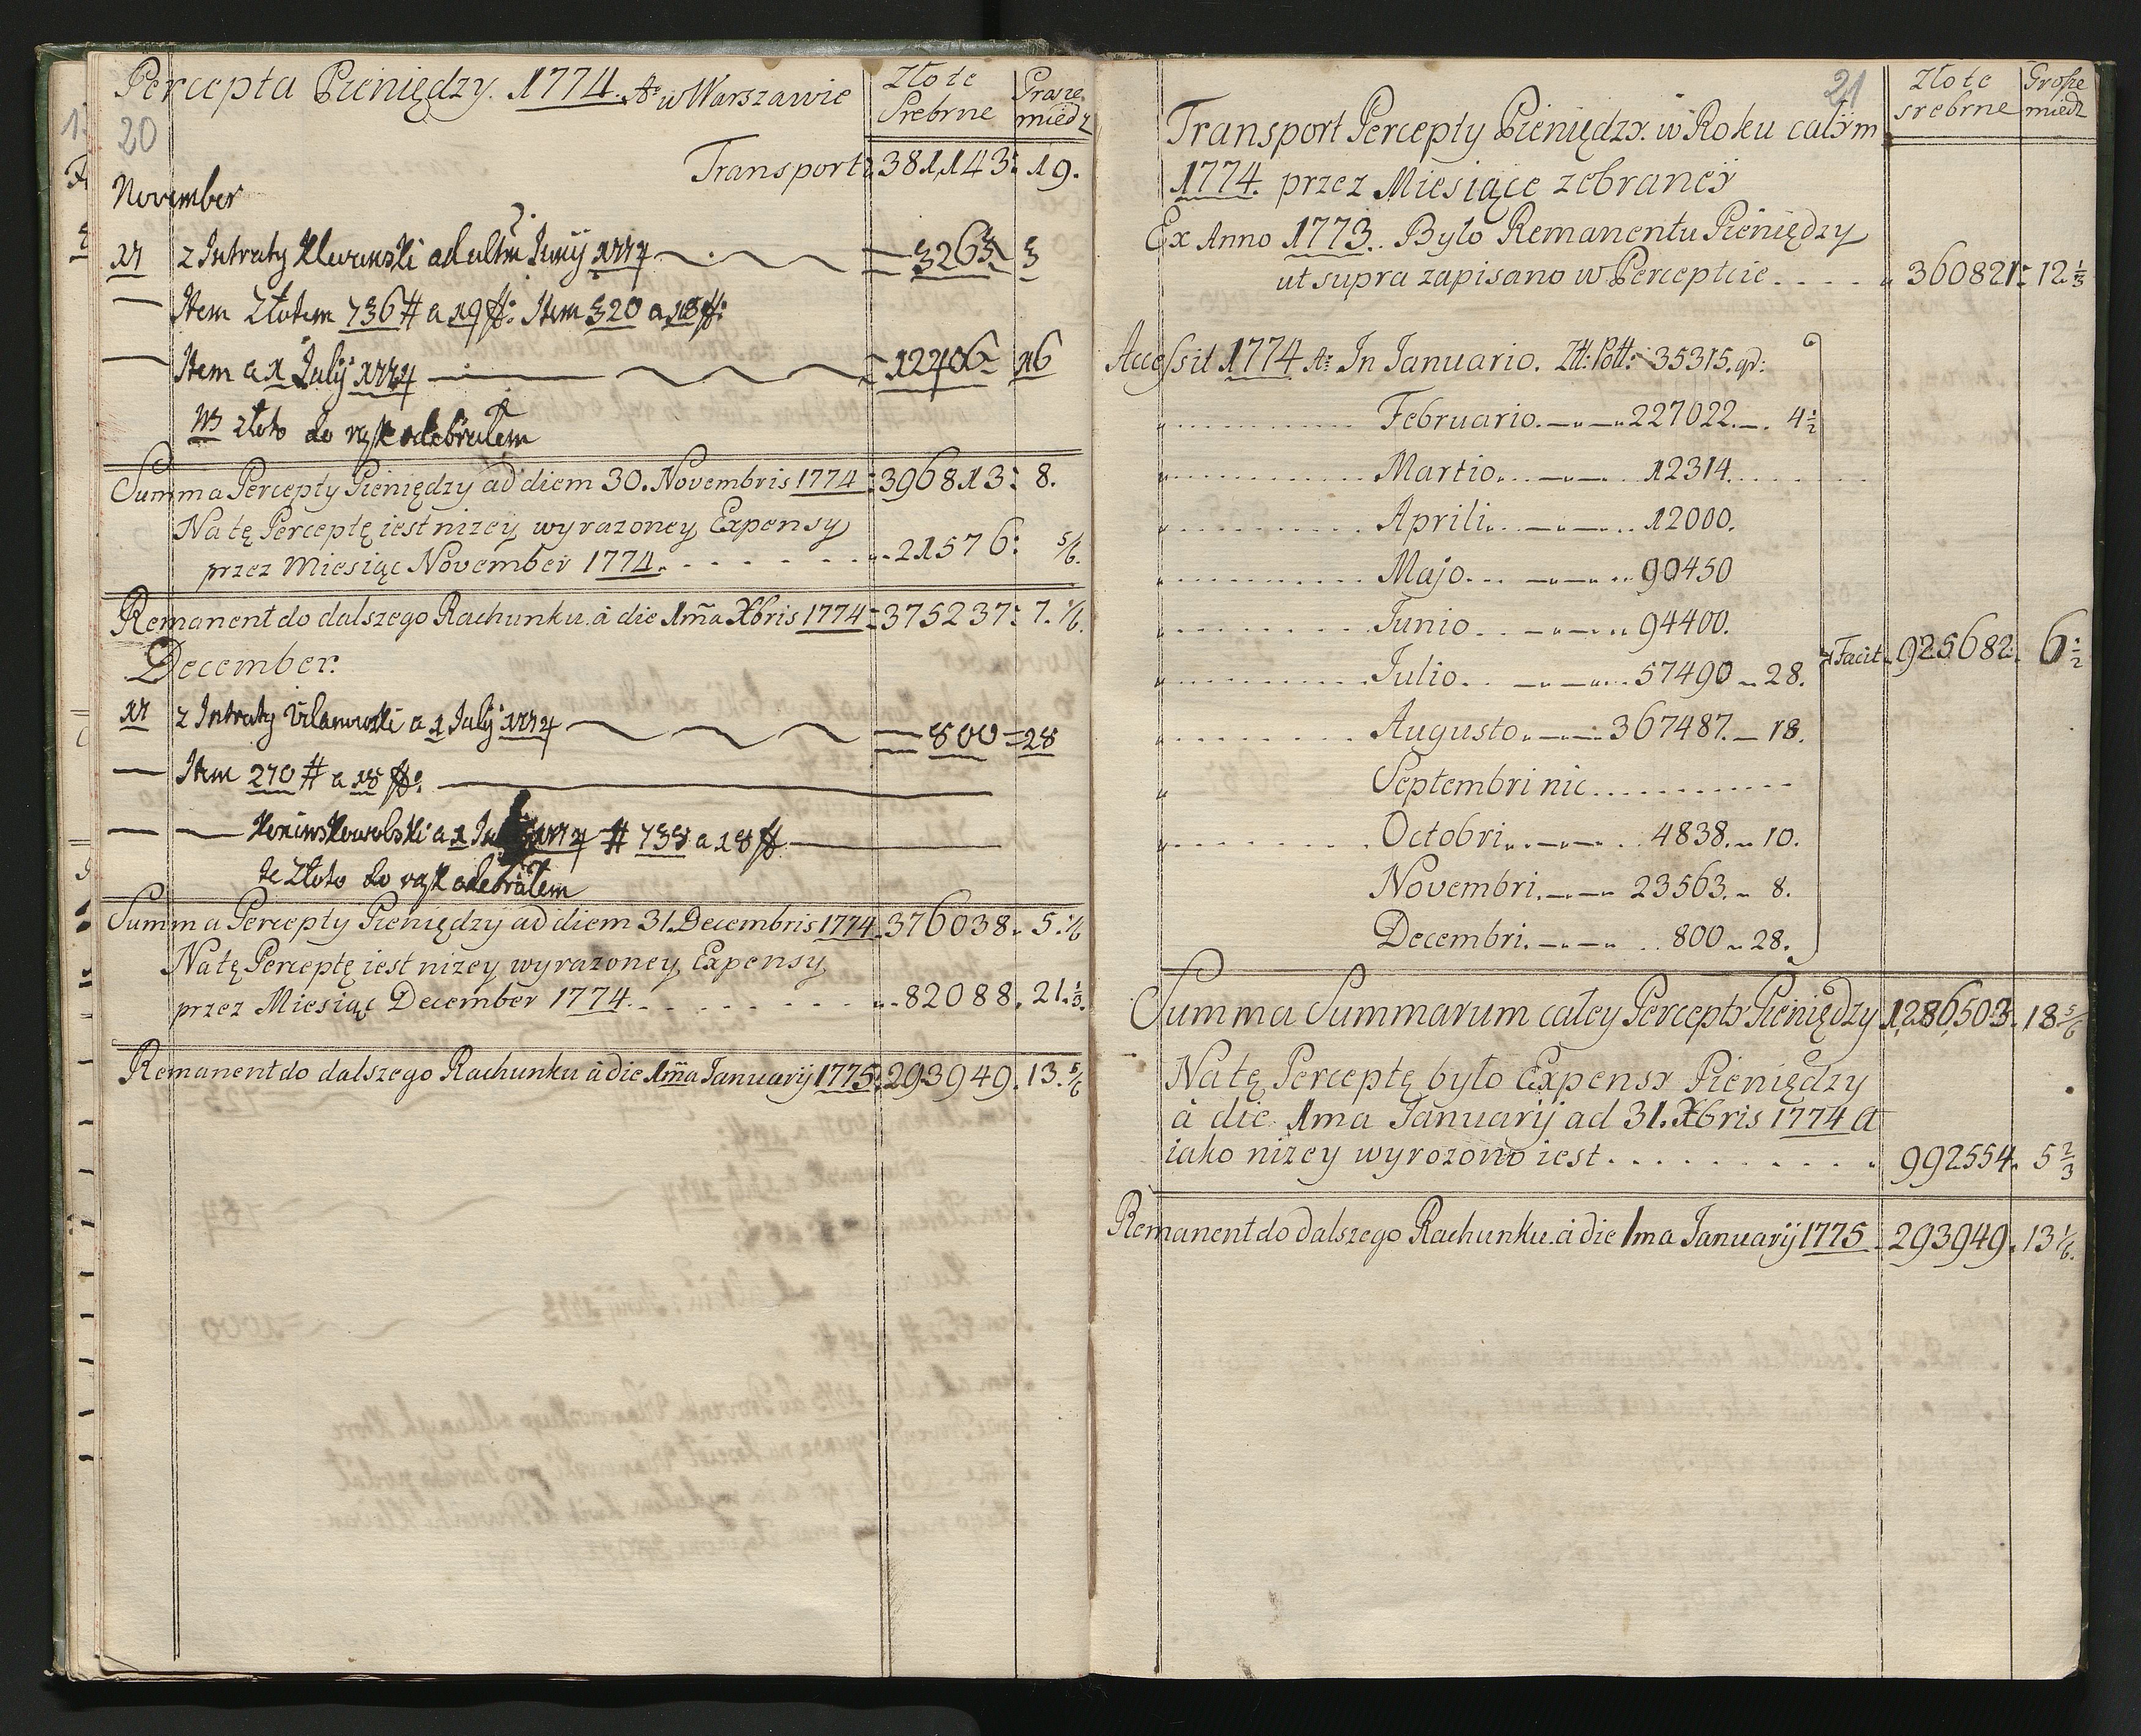 Percepta Pieniędzy. 1774. Ao w Warszawie
Złote Srebrne
Grosze miedz
20
Transport 381,143: 19.
November
17 z Intraty ad ultm Junij 1774 3263 3
Item Złotem 736 # a 19 ff: Item 320 a 18 ff:
Item a 1 Julij 1774 12406 16
NB złoto do rąk odebrałem
Summa Percepty Pieniędzy ad diem 30. Novembris 1774 396813: 8.
Na tę Perceptę iest niżey wyrażoney Expensy
przez Miesiąc November 1774. 21576: 5/6.
Remanent do dalszego Rachunku à die 1ma Xbris 1774 375237: 7. 1/6.
December.
17 z Intraty Vilanowski a 1 Julij 1774 800 28
Item 270 # a 18 ff:
a 1 1774 # 738 a 18 ff
te Złoto do rąk odebrałem
Summa Percepty Pieniędzy ad diem 31. Decembris 1774 376038. 5. 1/6
Na tę Perceptę iest niżey wyrażoney Expensy
przez Miesiąc December 1774. 82088. 21. 1/3.
Remanent do dalszego Rachunku à die 1ma Januarij 1775. 293949. 13. 5/6
21
Złote srebrne
Grosze miedz
Transport Percepty Pieniędzy. w Roku całym
1774. przez Miesiące zebraney
Ex Anno 1773. Było Remanentu Pieniędzy
ut supra zapisano w Perceptcie. 360821: 12 1/3
Accessit 1774 Ao In Januario. Zlt: Poll: 35315. gr:
Februario. 227022. 4 1/2
Martio. 12314.
Aprili. 12000.
Majo. 90450
Junio. 94400.
Facit 925682. 6 1/2
Julio. 57490 28.
Augusto. 367487. 18.
Septembri nic
Octobri. 4838. 10.
Novembri. 23563. 8.
Decembri. 800 28.
Summa Summarum całey Percepty Pieniędzy 1,286,503. 18 5/6
Na tę Perceptę było Expensy Pieniędzy
à die 1ma Januarij ad 31. Xbris 1774 A
iako niżey wyrozono iest. 992554. 5 2/3
Remanent do dalszego Rachunku. à die 1ma Januarij 1775 293949. 13 1/6.